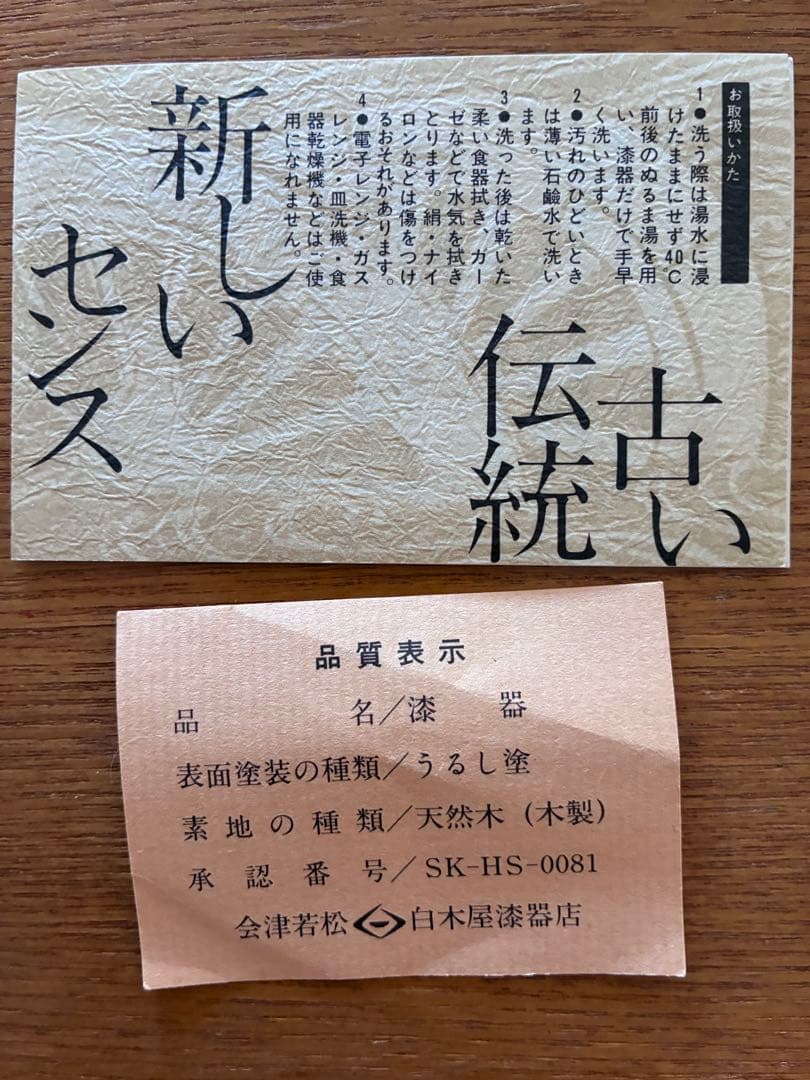 お取扱いかた
1●洗う際は湯水に浸
けたままにせず40℃
前後のぬるま湯を用
い、漆器だけで手早
く洗います。
2●汚れのひどいとき
は薄い石鹼水で洗い
ます。
3●洗った後は乾いた
柔い食器拭き、ガー
ゼなどで水気を拭き
とります。絹・ナイ
ロンなどは傷をつけ
るおそれがあります。
4●電子レンジ・ガス
レンジ・皿洗機・食
器乾燥機などはご使
用になれません。
古い
伝統
新しい
センス
品質表示
品名/漆器
表面塗装の種類/うるし塗
素地の種類/天然木(木製)
承認番号/SK-HS-0081
会津若松 白木屋漆器店